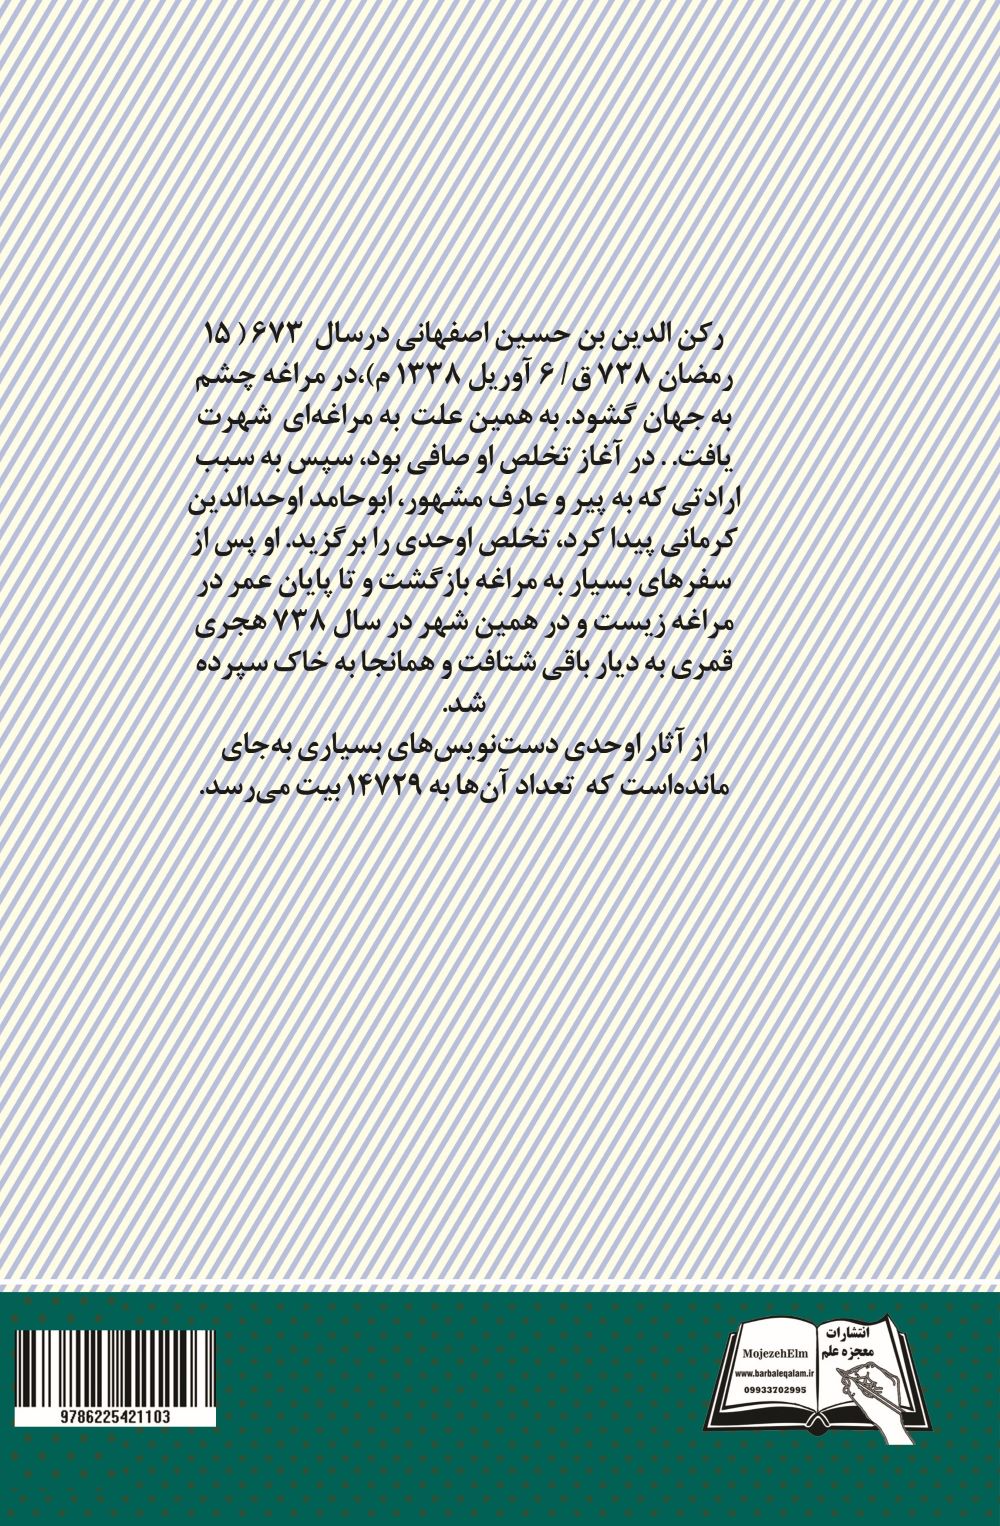 رکن الدین بن حسین اصفهانی درسال ۶۷۳ ( ۱۵
رمضان ۷۳۸ ق/ ۶ آوریل ۱۳۳۸ م)،در مراغه چشم
به جهان گشود. به همین علت به مراغه‌ای شهرت
یافت. . در آغاز تخلص او صافی بود، سپس به سبب
ارادتی که به پیر و عارف مشهور، ابوحامد اوحدالدین
کرمانی پیدا کرد، تخلص اوحدی را برگزید. او پس از
سفرهای بسیار به مراغه بازگشت و تا پایان عمر در
مراغه زیست و در همین شهر در سال ۷۳۸ هجری
قمری به دیار باقی شتافت و همانجا به خاک سپرده
شد.
از آثار اوحدی دست‌نویس‌های بسیاری به‌جای
مانده‌است که تعداد آن‌ها به ۱۴۷۲۹ بیت می‌رسد.
انتشارات
معجزه علم
MojezehElm
www.barbaleqalam.ir
09933702995
9786225421103